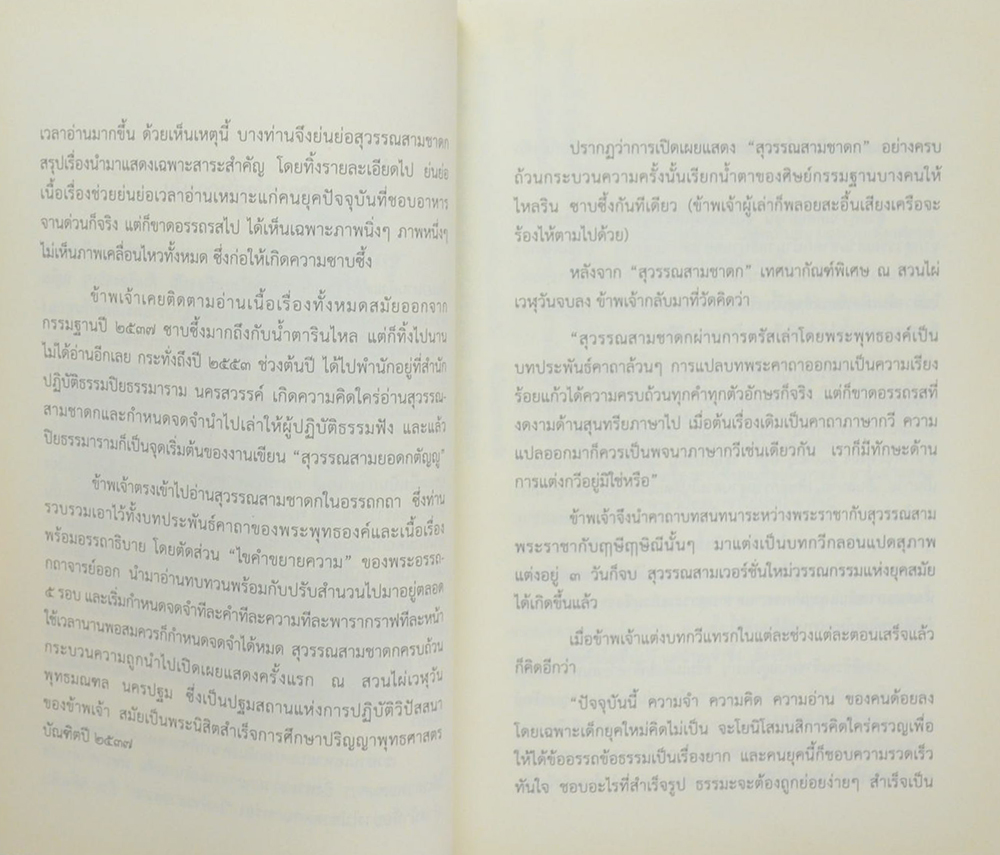 เวลาอ่านมากขึ้น ด้วยเห็นเหตุนี้ บางท่านจึงย่นย่อสุวรรณสามชาดก
สรุปเรื่องนำมาแสดงเฉพาะสาระสำคัญ โดยทิ้งรายละเอียดไป ย่นย่อ
เนื้อเรื่องช่วยย่นย่อเวลาอ่านเหมาะแก่คนยุคปัจจุบันที่ชอบอาหาร
จานด่วนก็จริง แต่ก็ขาดอรรถรสไป ได้เห็นเฉพาะภาพนิ่งๆ ภาพหนึ่งๆ
ไม่เห็นภาพเคลื่อนไหวทั้งหมด ซึ่งก่อให้เกิดความซาบซึ้ง
ข้าพเจ้าเคยติดตามอ่านเนื้อเรื่องทั้งหมดสมัยออกจาก
กรรมฐานปี ๒๕๓๗ ซาบซึ้งมากถึงกับน้ำตารินไหล แต่ก็ทิ้งไปนาน
ไม่ได้อ่านอีกเลย กระทั่งถึงปี ๒๕๕๓ ช่วงต้นปี ได้ไปพำนักอยู่ที่สำนัก
ปฏิบัติธรรมปิยธรรมาราม นครสวรรค์ เกิดความคิดใคร่อ่านสุวรรณ-
สามชาดกและกำหนดจดจำนำไปเล่าให้ผู้ปฏิบัติธรรมฟัง และแล้ว
ปิยธรรมารามก็เป็นจุดเริ่มต้นของงานเขียน “สุวรรณสามยอดกตัญญู”
ข้าพเจ้าตรงเข้าไปอ่านสุวรรณสามชาดกในอรรถกถา ซึ่งท่าน
รวบรวมเอาไว้ทั้งบทประพันธ์คาถาของพระพุทธองค์และเนื้อเรื่อง
พร้อมอรรถาธิบาย โดยตัดส่วน “ไขคำขยายความ” ของพระอรรถ-
กถาจารย์ออก นำมาอ่านทบทวนพร้อมกับปรับสำนวนไปมาอยู่ตลอด
๕ รอบ และเริ่มกำหนดจดจำทีละคำทีละความทีละพารากราฟทีละหน้า
ใช้เวลานานพอสมควรก็กำหนดจดจำได้หมด สุวรรณสามชาดกครบถ้วน
กระบวนความถูกนำไปเปิดเผยแสดงครั้งแรก ณ สวนไผ่เวฬุวัน
พุทธมณฑล นครปฐม ซึ่งเป็นปฐมสถานแห่งการปฏิบัติวิปัสสนา
ของข้าพเจ้า สมัยเป็นพระนิสิตสำเร็จการศึกษาปริญญาพุทธศาสตร
บัณฑิตปี ๒๕๓๗
ปรากฏว่าการเปิดเผยแสดง “สุวรรณสามชาดก” อย่างครบ
ถ้วนกระบวนความครั้งนั้นเรียกน้ำตาของศิษย์กรรมฐานบางคนให้
ไหลริน ซาบซึ้งกันทีเดียว (ข้าพเจ้าผู้เล่าก็พลอยสะอื้นเสียงเครือจะ
ร้องไห้ตามไปด้วย)
หลังจาก “สุวรรณสามชาดก” เทศนากัณฑ์พิเศษ ณ สวนไผ่
เวฬุวันจบลง ข้าพเจ้ากลับมาที่วัดคิดว่า
“สุวรรณสามชาดกผ่านการตรัสเล่าโดยพระพุทธองค์เป็น
บทประพันธ์คาถาล้วนๆ การแปลบทพระคาถาออกมาเป็นความเรียง
ร้อยแก้วได้ความครบถ้วนทุกคำทุกตัวอักษรก็จริง แต่ก็ขาดอรรถรสที่
งดงามด้านสุนทรียภาษาไป เมื่อต้นเรื่องเดิมเป็นคาถาภาษากวี ความ
แปลออกมาก็ควรเป็นพจนาภาษากวีเช่นเดียวกัน เราก็มีทักษะด้าน
การแต่งกวีอยู่มิใช่หรือ”
ข้าพเจ้าจึงนำคาถาบทสนทนาระหว่างพระราชากับสุวรรณสาม
พระราชากับฤๅษีฤๅษิณีนั้นๆ มาแต่งเป็นบทกวีกลอนแปดสุภาพ
แต่งอยู่ ๓ วันก็จบ สุวรรณสามเวอร์ชั่นใหม่วรรณกรรมแห่งยุคสมัย
ได้เกิดขึ้นแล้ว
เมื่อข้าพเจ้าแต่งบทกวีแทรกในแต่ละช่วงแต่ละตอนเสร็จแล้ว
ก็คิดอีกว่า
“ปัจจุบันนี้ ความจำ ความคิด ความอ่าน ของคนด้อยลง
โดยเฉพาะเด็กยุคใหม่คิดไม่เป็น จะโยนิโสมนสิการคิดใคร่ครวญเพื่อ
ให้ได้ข้ออรรถข้อธรรมเป็นเรื่องยาก และคนยุคนี้ก็ชอบความรวดเร็ว
ทันใจ ชอบอะไรที่สำเร็จรูป ธรรมะจะต้องถูกย่อยง่ายๆ สำเร็จเป็น